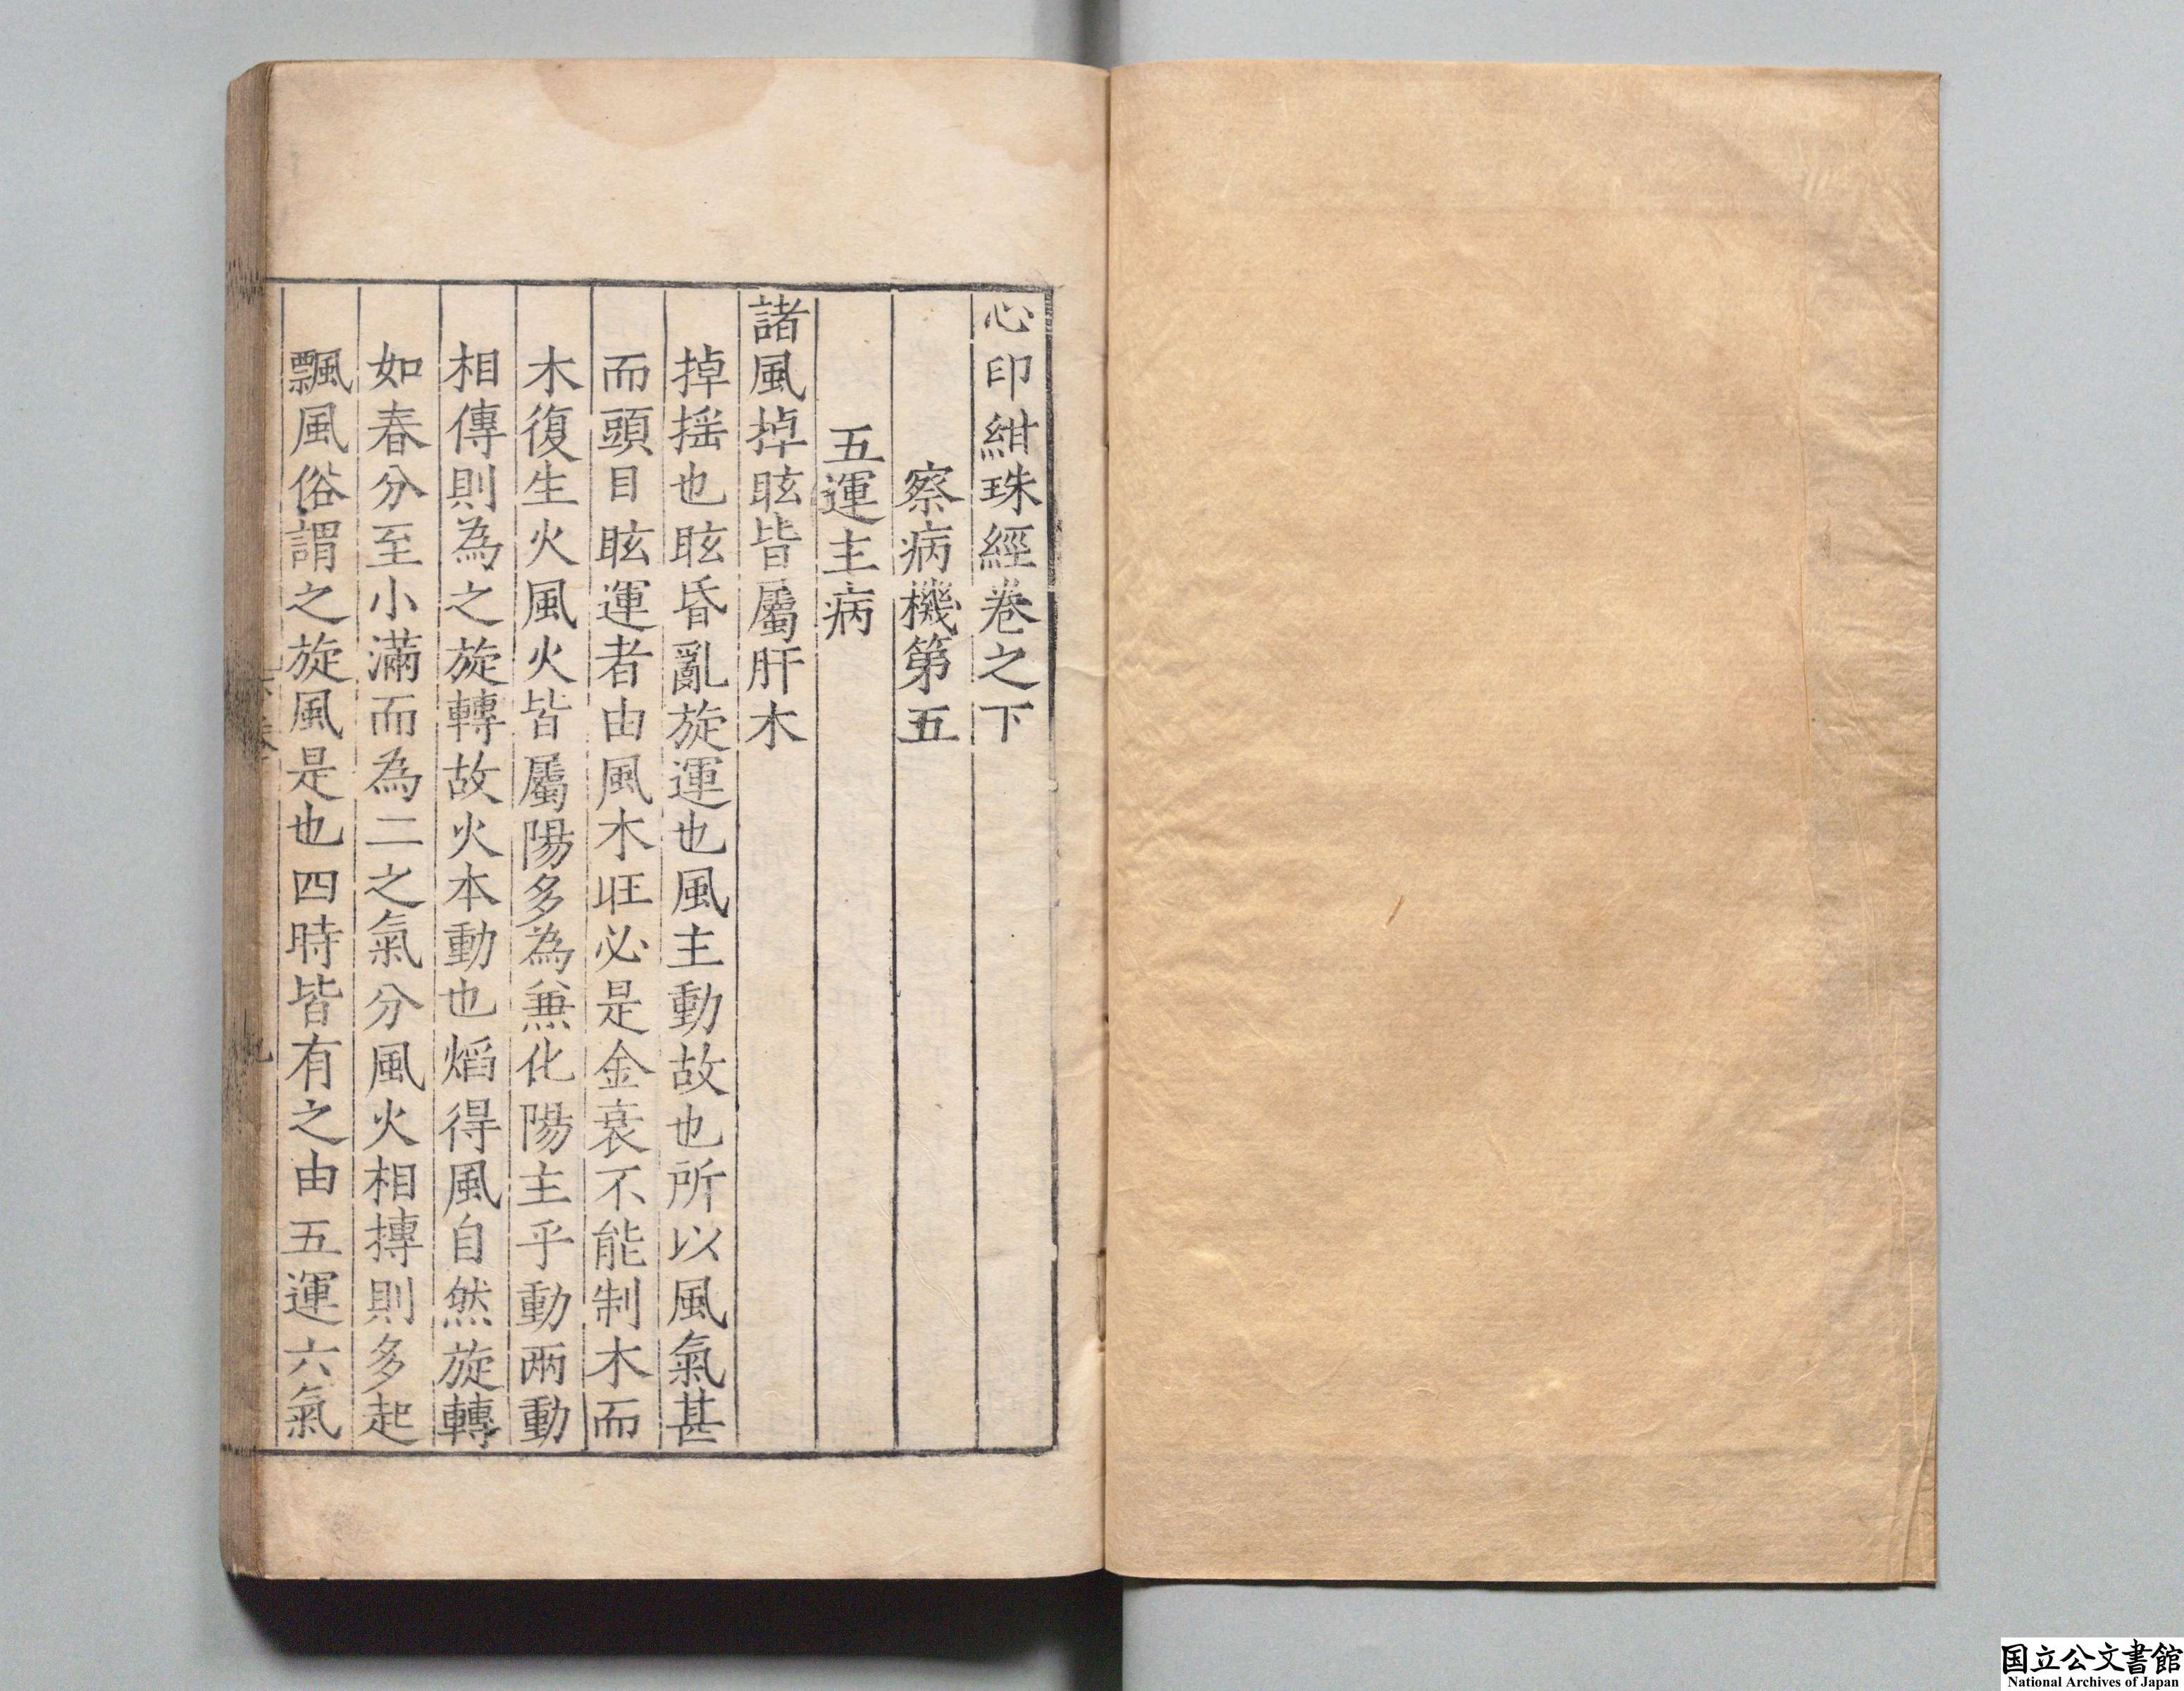 心印紺珠經卷之下
察病機第五
五運主病
諸風掉眩皆屬肝木
掉摇也眩昏亂旋運也風主動故也所以風氣甚
而頭目眩運者由風木旺必是金衰不能制木而
木復生火風火皆屬陽多為兼化陽主乎動兩動
相傳則為之旋轉故火本動也熖得風自然旋轉
如春分至小滿而為二之氣分風火相摶則多起
飄風俗謂之旋風是也四時皆有之由五運六氣
国立公文書館
National Archives of Japan